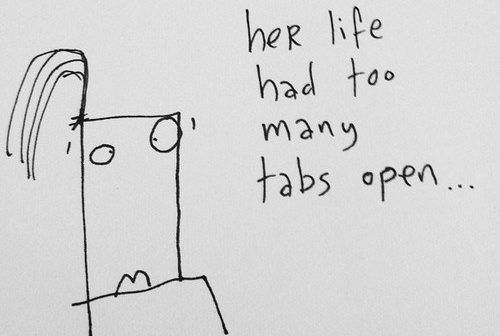 her life
had too
many
tabs open...